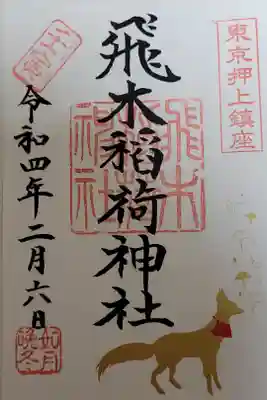 東京押上鎮座
飛木稲荷神社
飛木稲荷神社
令和四年二月六日
如月
晩冬